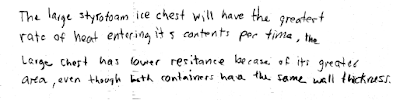 The large styrofoam ice chest will have the greatest
rate of heat entering it s contents per time, the
Large Chest has lower resitance becase of its greater
area, even though both containers have the same wall thickness.